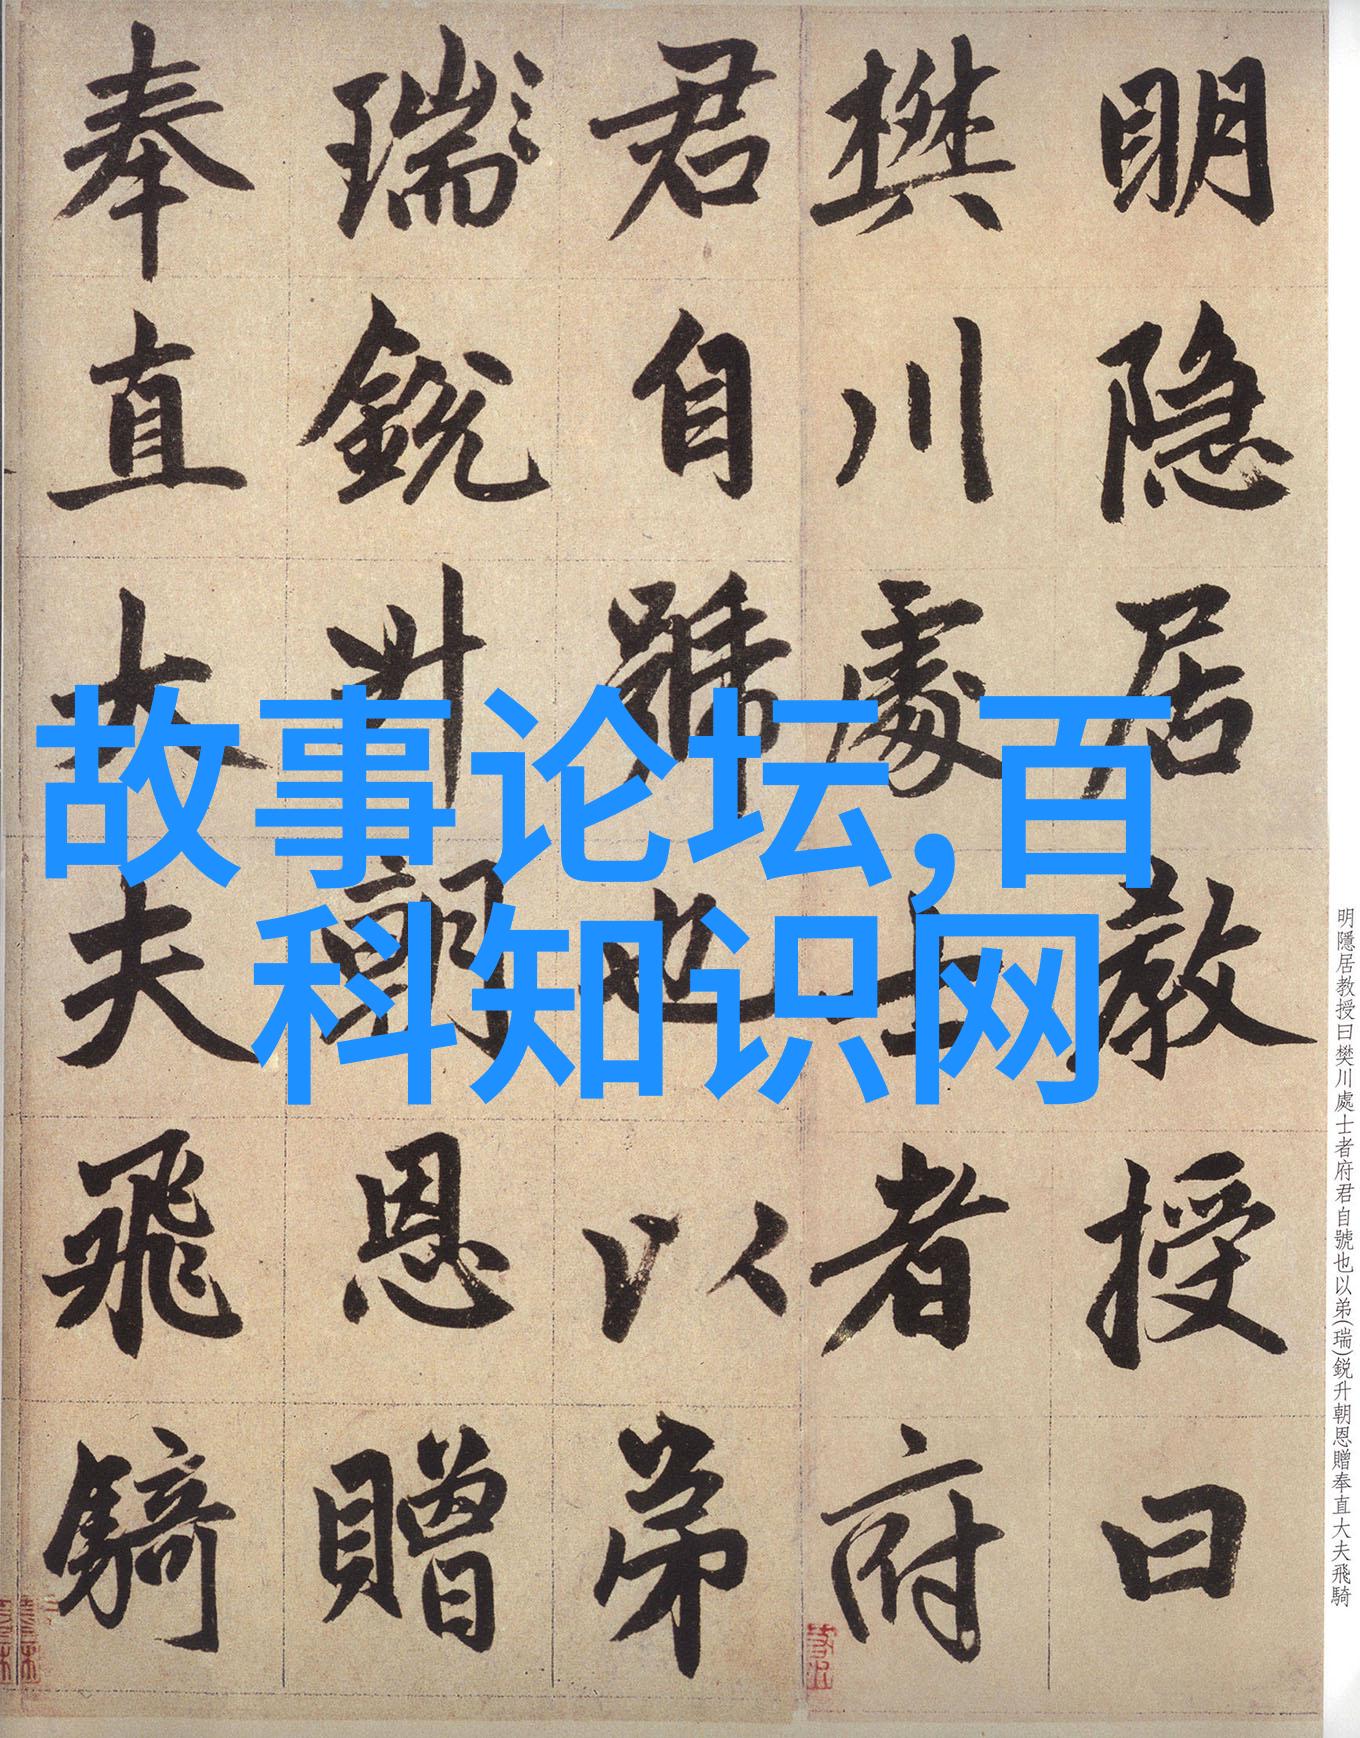 明隐居教授曰
樊川處士者府
君自號也以弟
瑞銳升朝恩贈
奉直大夫飛騎
故事论坛,百
科知识网
明隱居教授曰樊川處士者府君自號也以弟(瑞)鋭升朝恩贈奉直大夫飛騎